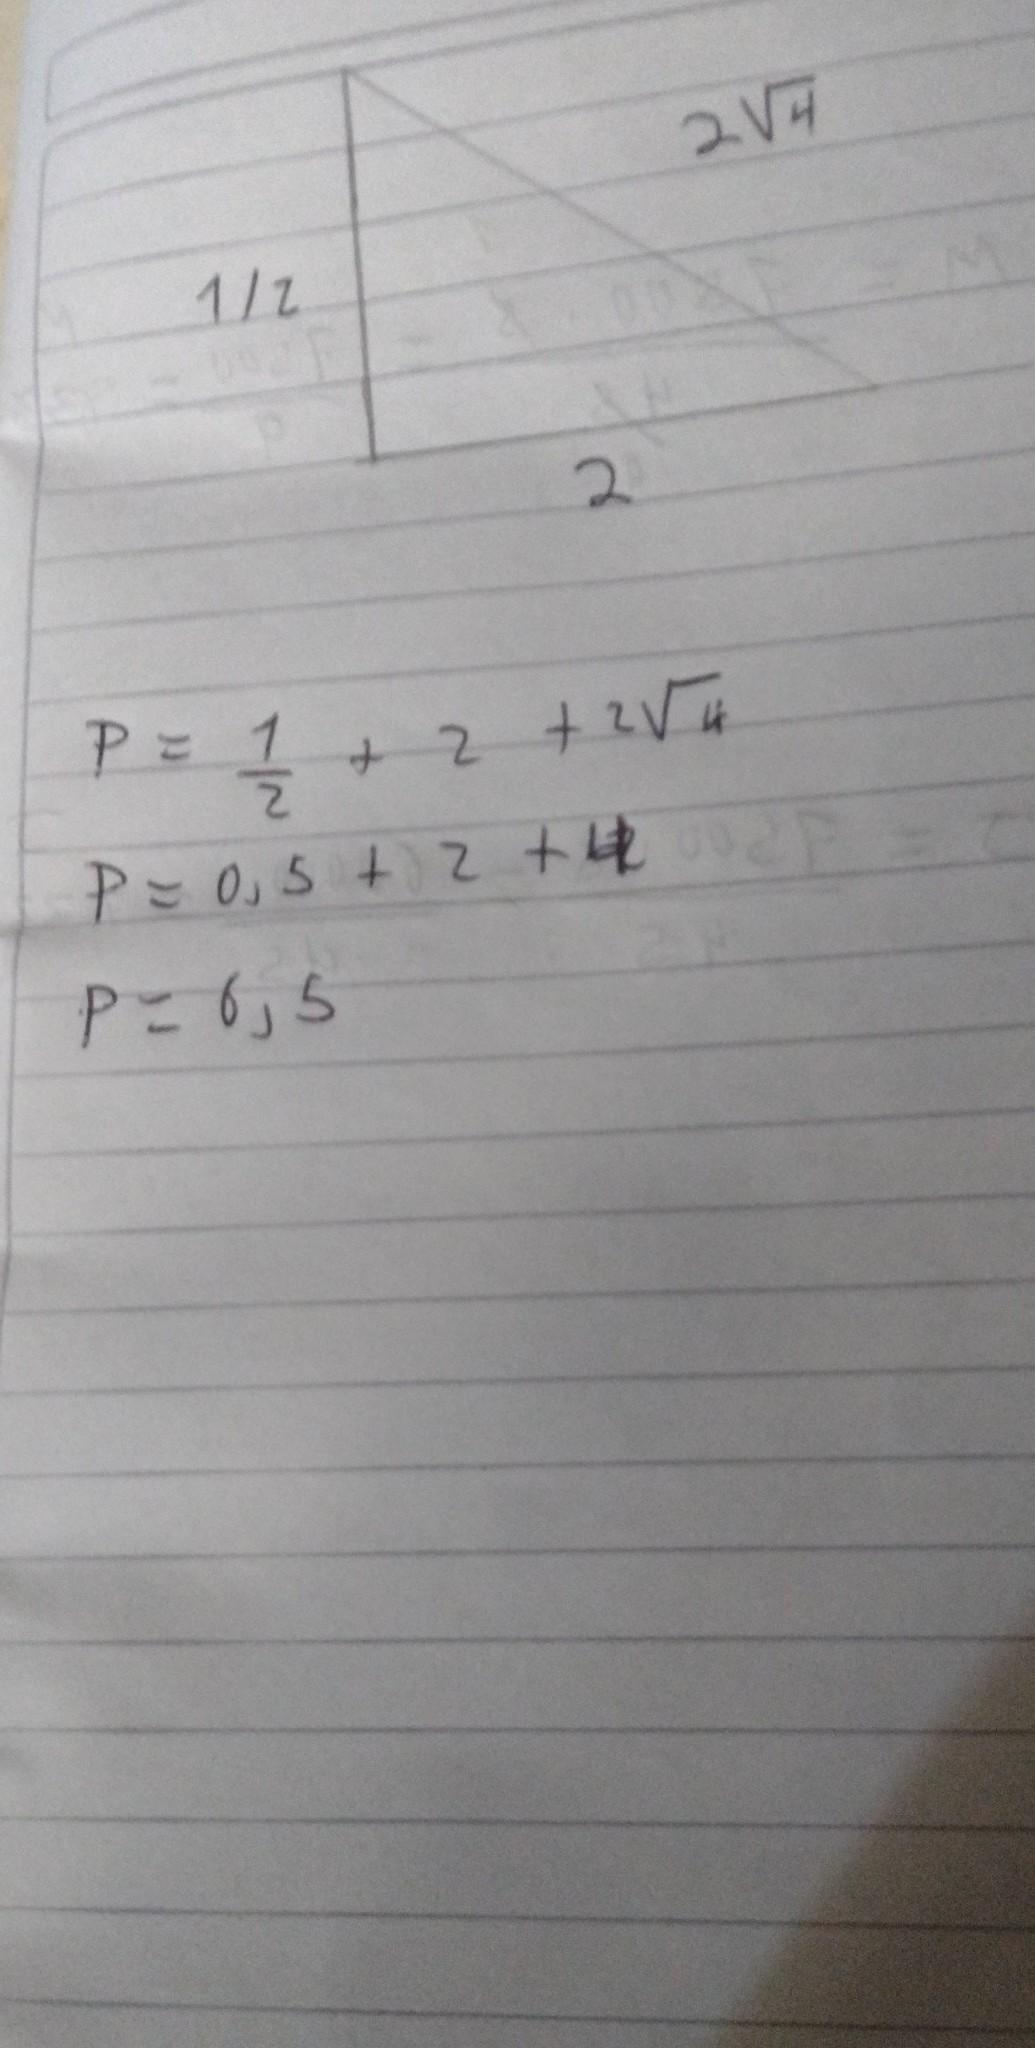 2√4
1/2
2
P = 1/2 + 2 + 2√4
P = 0,5 + 2 + 4
P = 6,5